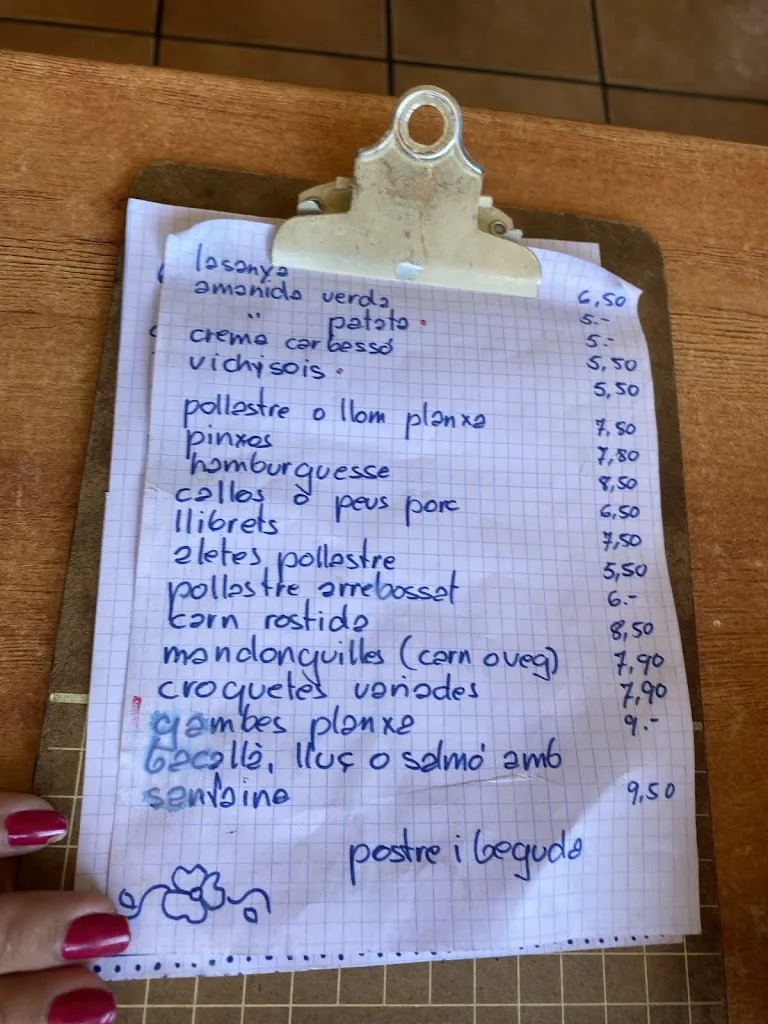 lasanya 6,50
amanida verda 5.-
" patata. 5.-
crema carbessó 5,50
vichysois. 5,50
pollastre o llom planxa 7,50
pinxos 7,80
hamburguesse 8,50
callos o peus porc 6,50
llibrets 7,50
aletes pollastre 5,50
pollastre arrebossat 6.-
carn rostida 8,50
mandonguilles (carn o veg) 7,90
croquetes variades 7,90
gambes planxa 9.-
bacallà, lluç o salmó amb
sanfaina 9,50
postre i beguda